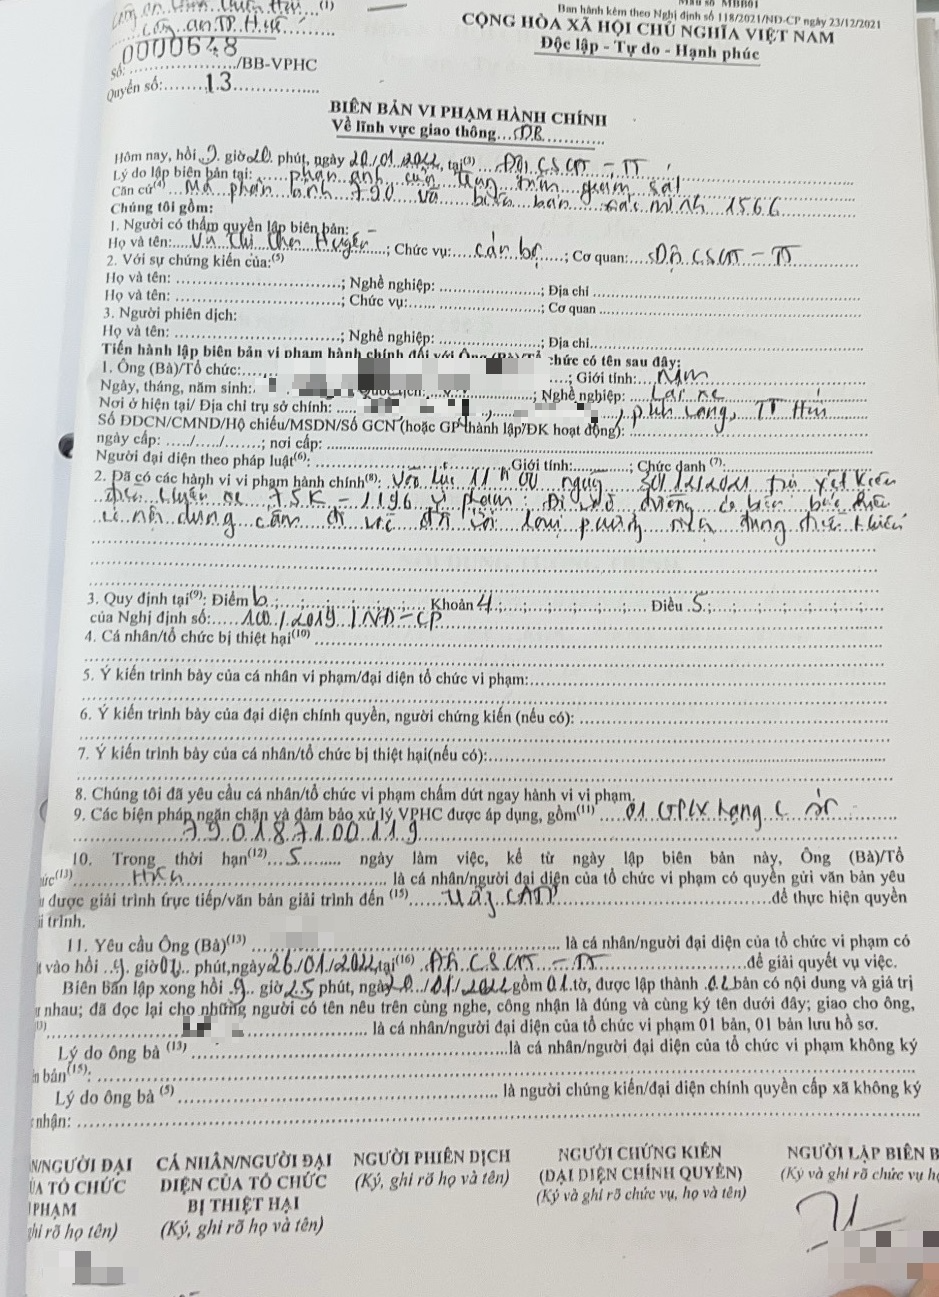 Mẫu số MBB01
Ban hành kèm theo Nghị định số 118/2021/NĐ-CP ngày 23/12/2021
Công an tỉnh Thừa Thiên Huế...(1)
Công an TP. Huế
CỘNG HÒA XÃ HỘI CHỦ NGHĨA VIỆT NAM
Độc lập - Tự do - Hạnh phúc
Số: 0000648/BB-VPHC
Quyển số: 13
BIÊN BẢN VI PHẠM HÀNH CHÍNH
Về lĩnh vực giao thông ĐB
Hôm nay, hồi 9 giờ 20 phút, ngày 20/01/2022, tại(3) Đội CSGT - TT
Lý do lập biên bản tại: phản ánh của trung tâm giám sát
Căn cứ(4) Mã phản ánh 790 và biên bản xác minh 1566
Chúng tôi gồm:
1. Người có thẩm quyền lập biên bản:
Họ và tên: Vũ Thị ; Chức vụ: cán bộ ; Cơ quan: Đội CSGT - TT
2. Với sự chứng kiến của:(5)
Họ và tên: ; Nghề nghiệp: ; Địa chỉ
Họ và tên: ; Chức vụ: ; Cơ quan
3. Người phiên dịch:
Họ và tên: ; Nghề nghiệp: ; Địa chỉ
Tiến hành lập biên bản vi phạm hành chính đối với Ông (Bà)/Tổ chức có tên sau đây:
1. Ông (Bà)/Tổ chức: ; Giới tính: Nam
Ngày, tháng, năm sinh: ; Nghề nghiệp: Lái xe
Nơi ở hiện tại/ Địa chỉ trụ sở chính: , Phú Vang, TT Huế
Số ĐDCN/CMND/Hộ chiếu/MSDN/Số GCN (hoặc GP thành lập/ĐK hoạt động):
ngày cấp: ...../...../.......; nơi cấp:
Người đại diện theo pháp luật(6): Giới tính: ; Chức danh (7):
2. Đã có các hành vi vi phạm hành chính(8): Vào lúc 11h00 ngày 30/12/2021 tại Kiệt
điều khiển xe 75K-1196 vi phạm: Đi vào đường có biển báo hiệu
có nội dung cấm đi vào đối với loại phương tiện đang điều khiển
3. Quy định tại(9): Điểm b Khoản 4 Điều 5
của Nghị định số: 100/2019/NĐ-CP
4. Cá nhân/tổ chức bị thiệt hại(10)
5. Ý kiến trình bày của cá nhân vi phạm/đại diện tổ chức vi phạm:
6. Ý kiến trình bày của đại diện chính quyền, người chứng kiến (nếu có):
7. Ý kiến trình bày của cá nhân/tổ chức bị thiệt hại(nếu có):
8. Chúng tôi đã yêu cầu cá nhân/tổ chức vi phạm chấm dứt ngay hành vi vi phạm.
9. Các biện pháp ngăn chặn và đảm bảo xử lý VPHC được áp dụng, gồm(11) 01 GPLX hạng C số
790187100119
10. Trong thời hạn(12) 5 ngày làm việc, kể từ ngày lập biên bản này, Ông (Bà)/Tổ
ức(13) là cá nhân/người đại diện của tổ chức vi phạm có quyền gửi văn bản yêu
được giải trình trực tiếp/văn bản giải trình đến (15) CATP để thực hiện quyền
i trình.
11. Yêu cầu Ông (Bà)(13) là cá nhân/người đại diện của tổ chức vi phạm có
t vào hồi 9 giờ 00 phút, ngày 26/01/2022, tại(16) Đội CSGT - TT để giải quyết vụ việc.
Biên bản lập xong hồi 9 giờ 25 phút, ngày 20/01/2022 gồm 01 tờ, được lập thành 02 bản có nội dung và giá trị
nhau; đã đọc lại cho những người có tên nêu trên cùng nghe, công nhận là đúng và cùng ký tên dưới đây; giao cho ông,
là cá nhân/người đại diện của tổ chức vi phạm 01 bản, 01 bản lưu hồ sơ.
Lý do ông bà (13) là cá nhân/người đại diện của tổ chức vi phạm không ký
bản(15):
Lý do ông bà (5) là người chứng kiến/đại diện chính quyền cấp xã không ký
nhận:
N/NGƯỜI ĐẠI CÁ NHÂN/NGƯỜI ĐẠI NGƯỜI PHIÊN DỊCH NGƯỜI CHỨNG KIẾN NGƯỜI LẬP BIÊN B
ỦA TỔ CHỨC DIỆN CỦA TỔ CHỨC (Ký, ghi rõ họ và tên) (ĐẠI DIỆN CHÍNH QUYỀN) (Ký và ghi rõ chức vụ họ
PHẠM BỊ THIỆT HẠI (Ký và ghi rõ chức vụ, họ và tên)
ghi rõ họ tên) (Ký, ghi rõ họ và tên)